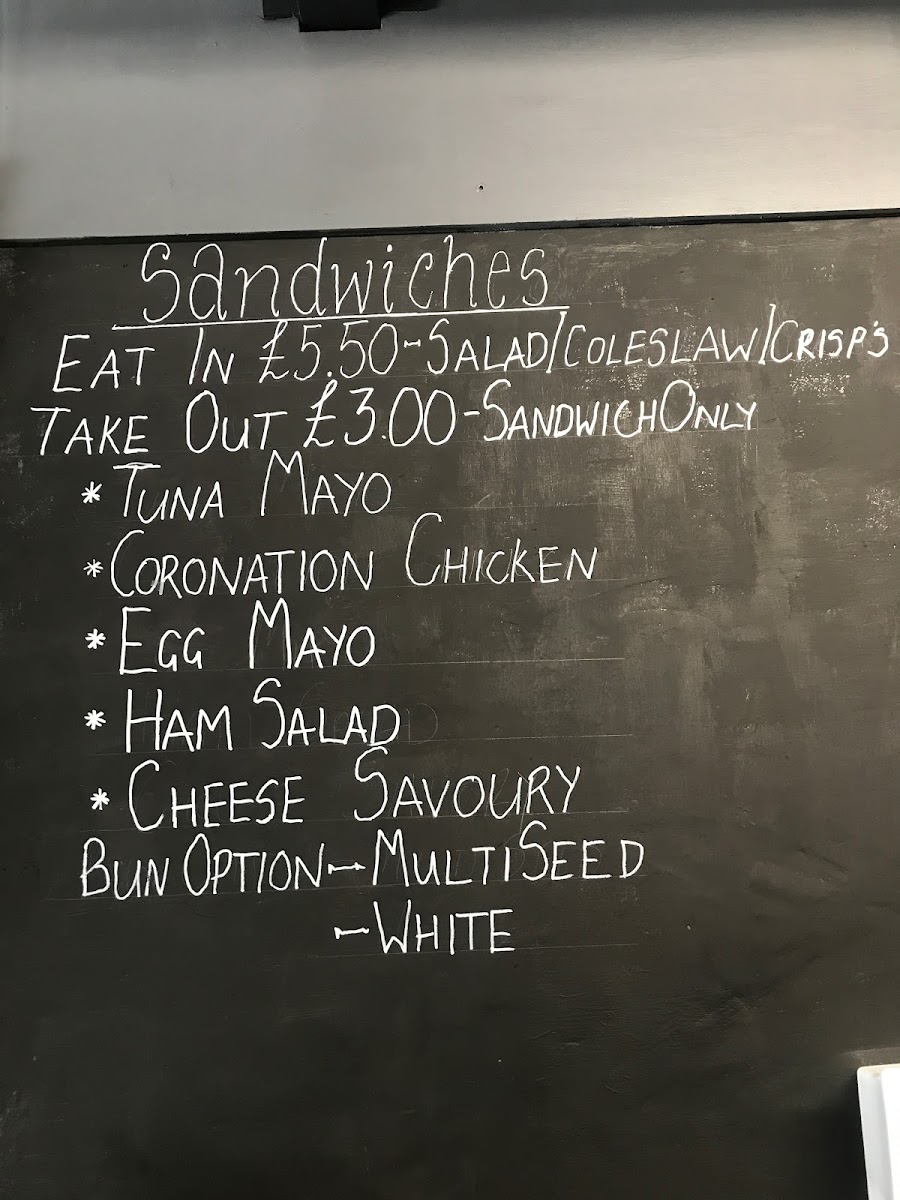 Sandwiches
EAT IN £5.50-SALAD/COLESLAW/CRISP'S
TAKE OUT £3.00-SANDWICH ONLY
* TUNA MAYO
* CORONATION CHICKEN
* EGG MAYO
* HAM SALAD
* CHEESE SAVOURY
BUN OPTION - MULTISEED
- WHITE